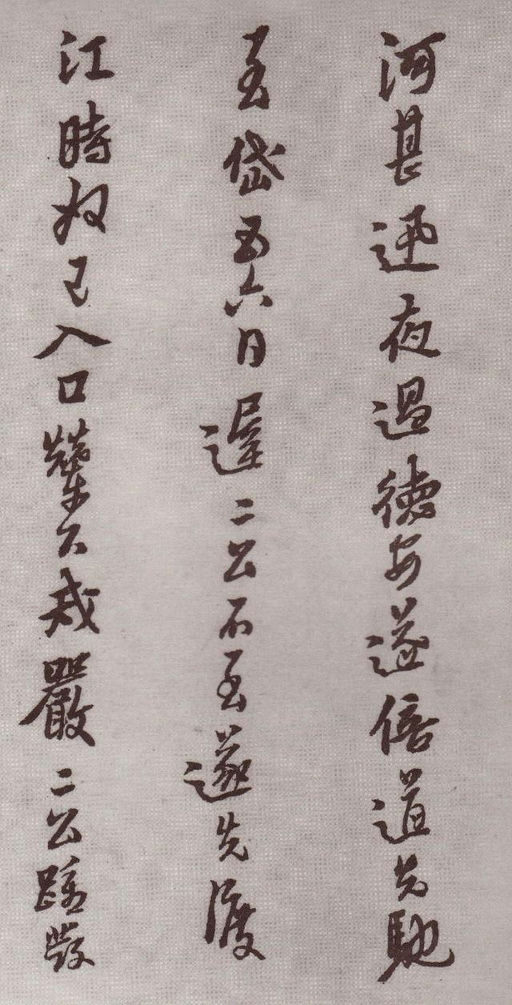 河甚迅夜過德安遂倍道先馳
至岱五六日遲二公不至遂先渡
江時奴已入口輦下戒嚴二公踉蹌